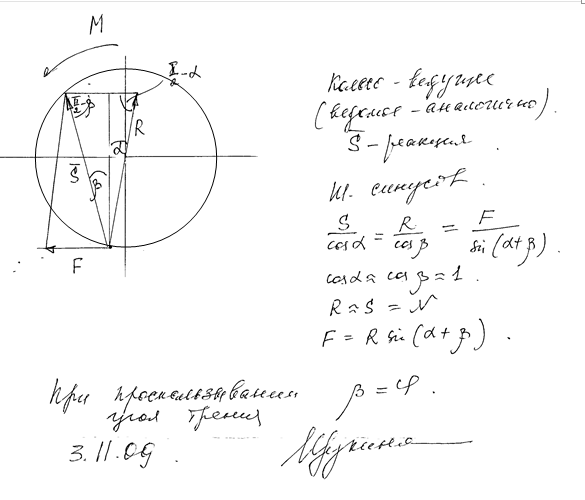 M
π/2 - α
π/2 - β
R
α
S̄
β
F
Колесо - ведущее
(ведомое - аналогично).
S̄ - реакция.
Т. синусов.
S/cosα = R/cosβ = F/sin(α+β).
cosα ≈ cosβ ≈ 1.
R ≈ S = N
F = R sin(α+β).
При проскальзывании
угол трения
β = φ.
3.11.09.
Щукина